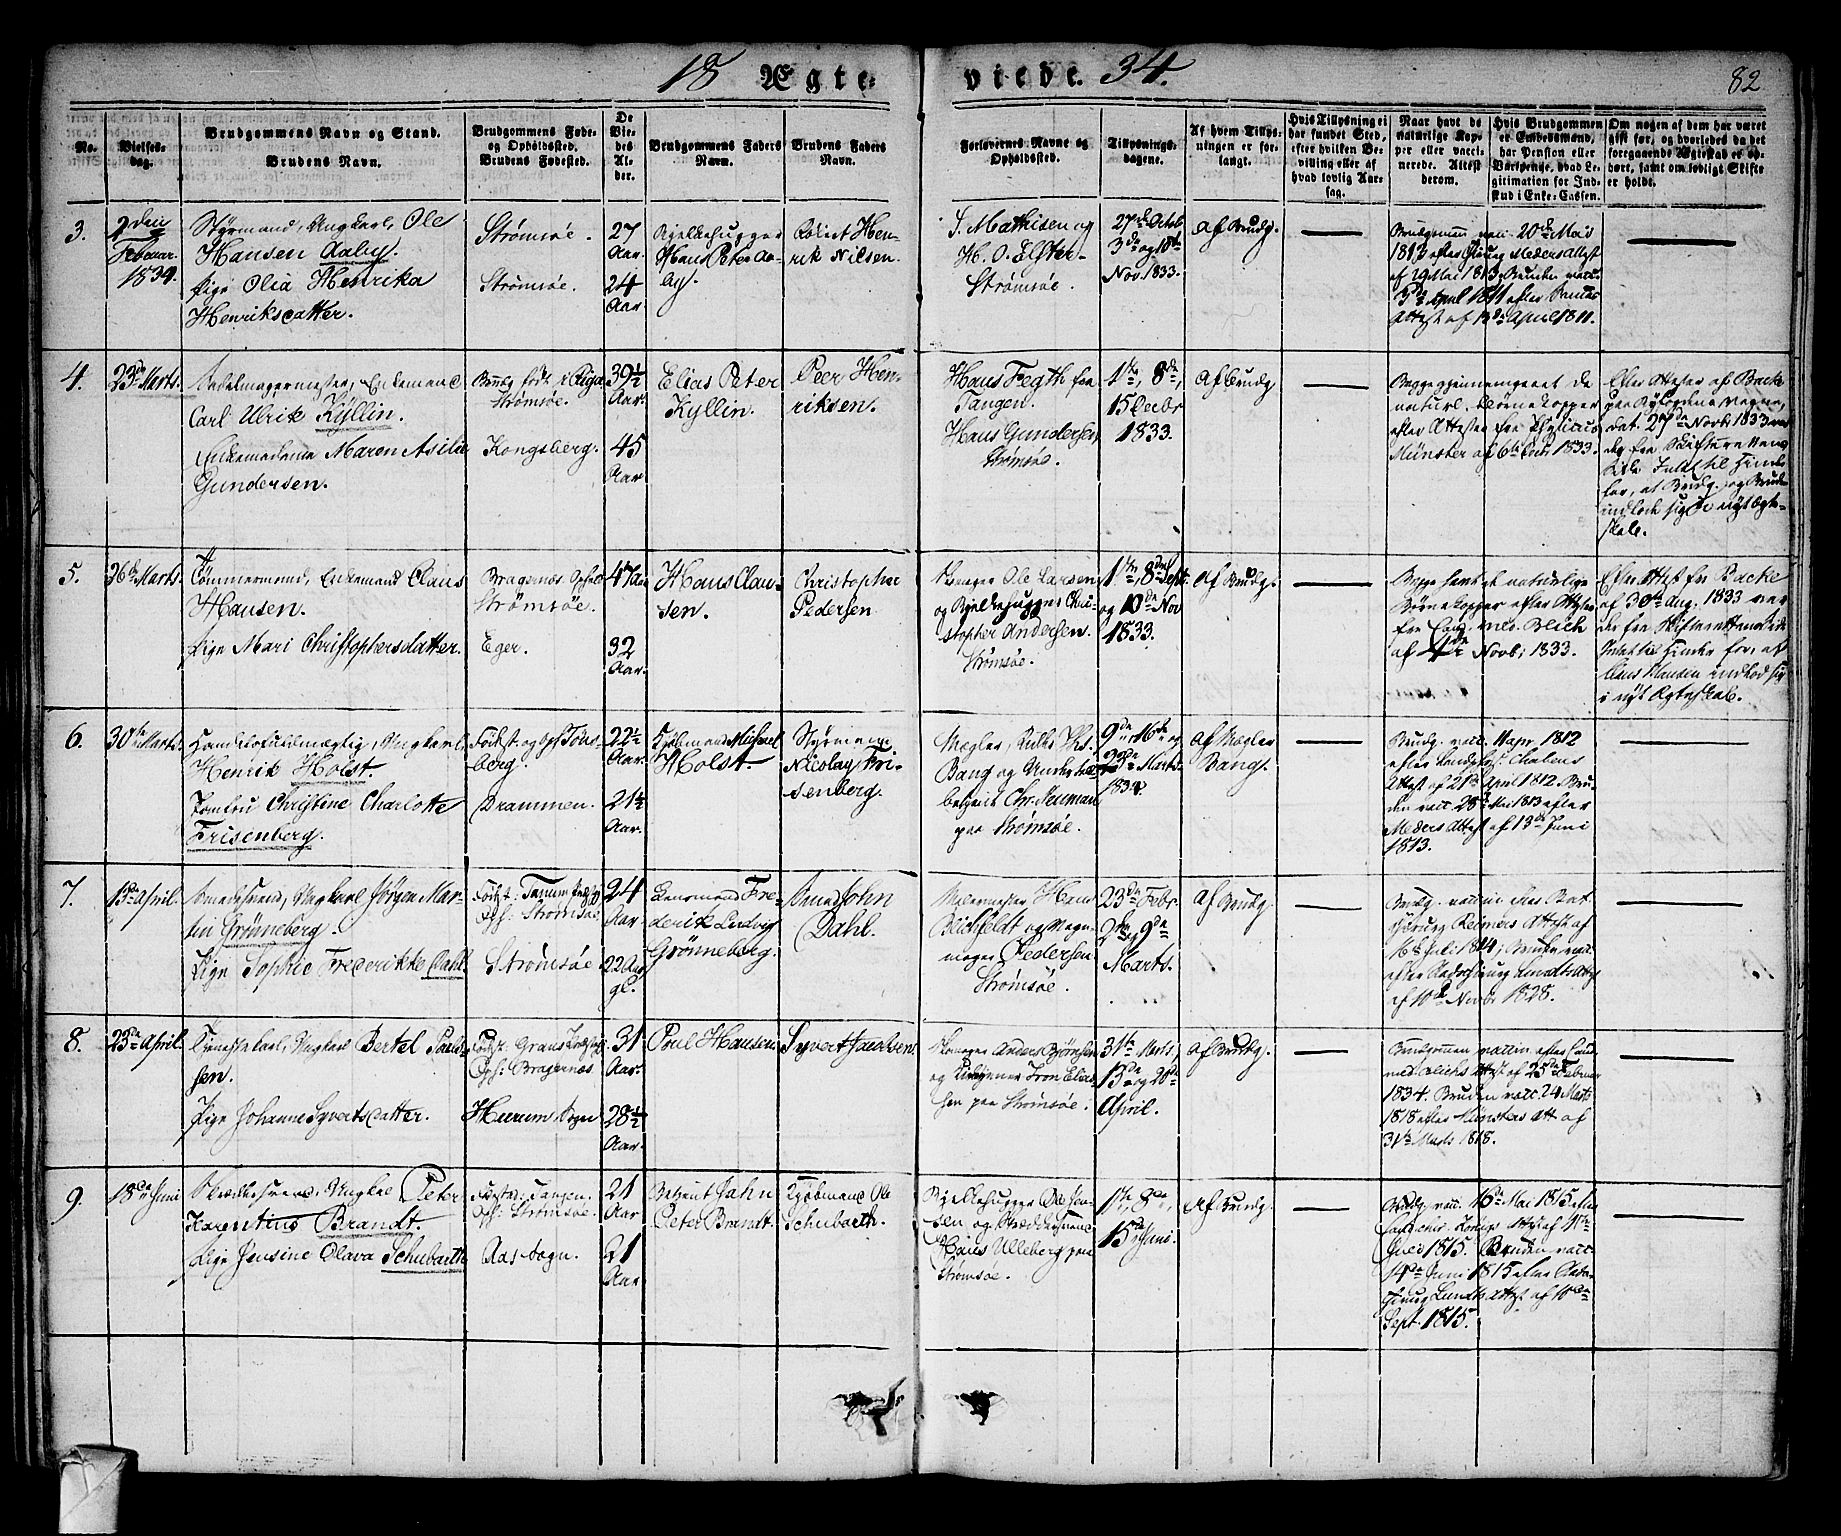 18 Ægte-
viede. 34.
82
No.
Vielses-
dag.
Brudgommens Navn og Stand.
Brudens Navn.
Brudgommens Føde-
og Opholdssted.
Brudens Fødested.
De
Vie-
des
Al-
der.
Brudgommens Faders
Navn.
Brudens Faders
Navn.
Forlovernes Navne og
Opholdssted.
Tillysnings-
dagene.
Af hvem Tillys-
ningen er for-
langt.
Hvis Tillysning ei
har fundet Sted,
efter hvilken Be-
villing eller af
hvad lovlig Aar-
sag.
Naar havt de
naturlige Kop-
per eller vacci-
nerede. Attest
derom.
Hvis Brudgommen
er Embedsmand,
har Pension eller
Vartpenge, hvad Le-
gitimation for Ind-
skud i Enke-Cassen.
Om nogen af dem har været
gift før, og hvorledes da det
foregaaende Ægteskab er op-
hørt, samt om lovligt Skifte
er holdt.
3.
2den
Februar
1834.
Styrmand, Ungkarl, Ole
Hansen Aaby.
Pige Olia Henrika
Henriksdatter.
Strømsøe.
Strømsøe.
27
Aar.
24
Aar
Bjelkehugger
Hans Peter Aa-
by.
Henrik Nilsen.
S. Mathisen og
H. O. Elster
Strømsøe.
27de Octob.
3de og 10de
Nov. 1833.
Af Brudg.
Brudgommen vacc. 20de Mai
1813 efter Chirurg Meders Attest
af 29 Mai 1813. Bruden vacc.
3de April 1811 efter
Attest af 13de April 1811.
4.
23de Marts.
Sadelmagermester, Enkemand
Carl Ulrik Kyllin.
Enkemadame Maren Asilie
Gundersen.
Brudg. født i Riga
Strømsøe.
Kongsberg.
39½
Aar.
45
Aar.
Elias Peter
Kyllin.
Peer Hen-
riksen.
Hans Fegth fra
Tangen.
Hans Gundersen,
Strømsøe.
1ste, 8de,
15 Decbr
1833.
Af Brudg.
Begge gjennemgaaet de
naturl. Børnekopper
efter Attester fra Physicus
Münster af 6te Decbr 1833.
Efter Attester af Backe
dat. 27de Novbr 1833 var
der fra Skifterettens
Side Intet til Hinder
for, at Brudg. og Brud
indlode sig i nyt Ægte-
skab.
5.
26de Marts.
Tømmermand, Enkemand Claus
Hansen.
Pige Mari Christophersdatter.
Bragernes Ophold
Strømsøe.
Eger.
47 Aar
32
Aar.
Hans Clau-
sen.
Christopher
Pedersen
Ole Larsen
og Bjelkehugger Chri-
stopher Andersen.
Strømsøe.
1ste, 8de Sept.
og 10de Nov
1833.
Af Brudg.
Begge havt de naturlige
Børnekopper efter Attester
fra Cand. med. Blich
af 4de Novb. 1833.
Efter Attest fra Backe
af 30te Aug. 1833 var
der fra Skifterettens Side
Intet til Hinder for, at
Claus Hansen indlod sig
i nyt Ægteskab.
6.
30te Marts.
Handelsfuldmægtig, Ungkarl
Henrik Holst.
Jomfru Christine Charlotte
Frisenberg.
Fødest. og Oph. Tøns-
berg.
Drammen.
22½
Aar.
21½
Aar.
Kjøbmand Michael
Holst.
Styrmand
Nicolay Fri-
senberg.
Mægler
Bang og
Chr. Neuman
paa Strømsøe.
9de, 16de og
23de Marts
1834.
Af Mægler
Bang.
Brudg. vacc. 11 Apr. 1812
efter Landphys. Thulens
Attest af 21de April 1812. Bru-
den vacc. 28de Mai 1813 efter
Meders Attest af 13de Juni
1813.
7.
13de April.
Ungkarl Jørgen Mar-
tin Grønneberg.
Pige Sophie Frederikke Dahl.
Fødst: Tanum Præstegj.
Oph: Strømsøe.
Strømsøe.
24
Aar.
22 Aar
gl.
Fre-
derik Ludvig
Grønneberg.
John
Dahl.
Hans
Blichfeldt og Vogn-
mager Pedersen
Strømsøe.
23de Febr.
2den, 9de
Marts.
Af Brudg.
Brudg. vaccin. efter Bat.
Chirurg Reimers Attest af
16de Juli 1814, Bruden vacc.
efter Raadschirurg Lundts Attest
af 10de Novbr 1828.
8.
23de April.
Tjenestekarl, Ungkarl Bertel Poul-
sen.
Pige Johanne Syvertsdatter.
Fødst: Grans Præstegj.
Oph: Bragernes
Hurum Sogn
31
Aar.
28½
Aar.
Poul Hansen
Syvert Jacobsen
Anders Bjørnsen
og Iron Elias-
sen paa Strømsøe.
31te Marts,
13de og 20de
April.
Af Brudg.
Brudgommen vaccin. efter Cand.
med. Blichs Attest af 25de Februar
1834. Bruden vacc. 24 Marts
1818 efter Münsters Att. af
31te Marts 1818.
9.
18de Juni
Ungkarl Peter
Karentius Brandt.
Pige Jensine Olava Schubarth
Fødsted: Tangen.
Oph: Strømsøe.
Aas Sogn.
21
Aar
21
Aar.
Jahn
Peter Brandt.
Kjøbmand Ole
Schubarth.
Bjelkehugger Ole Jen-
sen og
Hans Ulleberg paa
Strømsøe.
1ste, 8de,
15de Juni.
Af Brudg.
Brudg. vacc. 16de Mai 1815 efter
Attest af 11te
Juli 1815. Bruden vacc.
14de Juni 1815 efter Raads-
chirurg Lundts Attest af 10de
Sept. 1815.